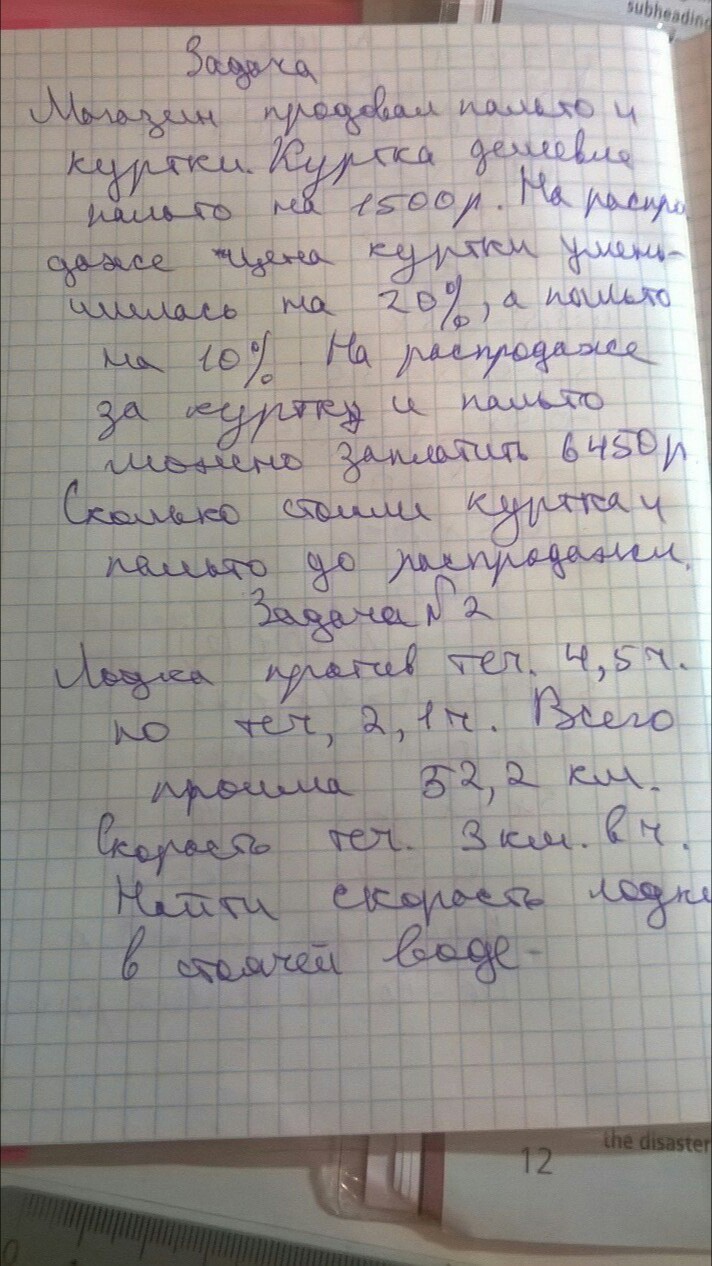 subheading
Задача
Магазин продовал пальто и
куртки. Куртка дешевле
пальто на 1500р. На распро
даже цена куртки умень-
шилась на 20%, а пальто
на 10%. На распродаже
за куртку и пальто
можно заплатить 6450р
Сколько стоили куртка и
пальто до распродажи.
Задача №2
Лодка против теч. 4,5ч.
по теч, 2,1ч. Всего
прошла 52,2 км.
Скорость теч. 3км. в ч.
Найти скорость лодки
в стоячей воде-
the disaster
12
0